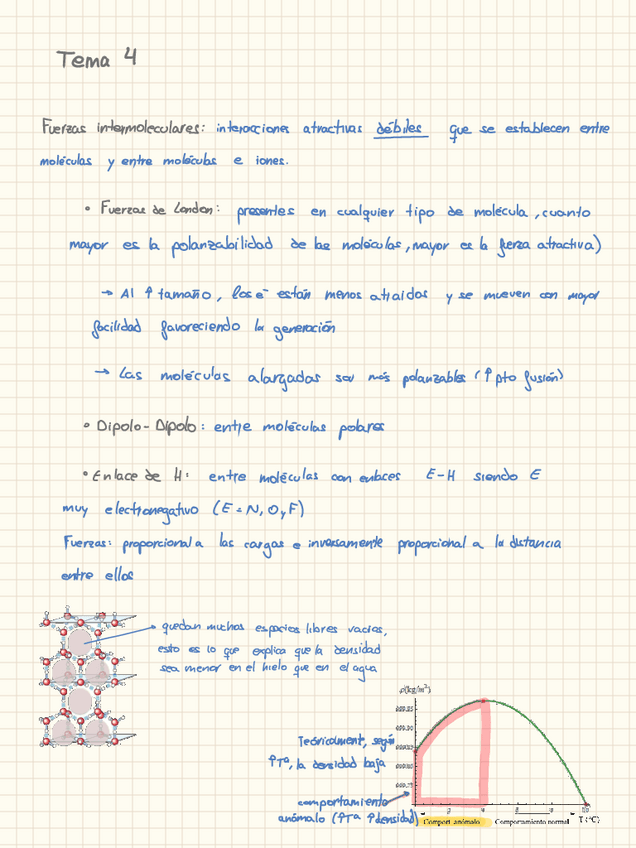 Tema 4
Fuerzas intermoleculares: interacciones atractivas débiles que se establecen entre
moléculas y entre moléculas e iones.
• Fuerzas de London: presentes en cualquier tipo de molécula, cuanto
mayor es la polarizabilidad de las moléculas, mayor es la ferza atractiva)
→ Al ↑ tamaño, los e⁻ están menos atraidos y se mueven con mayor
facilidad favoreciendo la generación
→ Las moléculas alargadas son más polarizables (↑ pto fusión)
• Dipolo-Dipolo: entre moléculas polares
• Enlace de H: entre moléculas con enlaces E-H siendo E
muy electronegativo (E = N, O y F)
Fuerzas: proporcional a las cargas e inversamente proporcional a la distancia
entre ellos
quedan muchos espacios libres vacios,
esto es lo que explica que la densidad
sea menor en el hielo que en el agua
ρ(kg/m³)
Teóricamente, según
↑Tª, la densidad baja
comportamiento
anómalo (↑Tª ↑densidad)
4
Comport. anómalo Comportamiento normal T (°C)